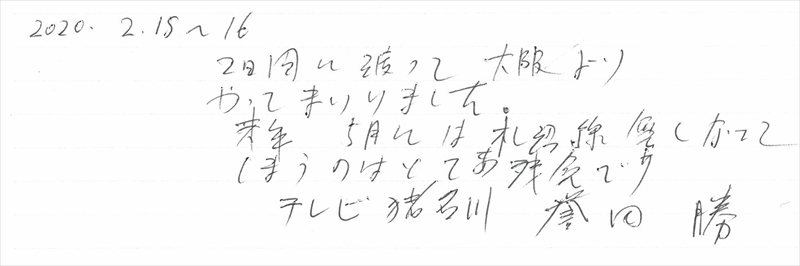 2020. 2.15〜16
2日間に渡って 大阪より
やってまいりました。
来年 5月には札沼線無くなって
しまうのはとても残念です
テレビ猪名川 誉田 勝